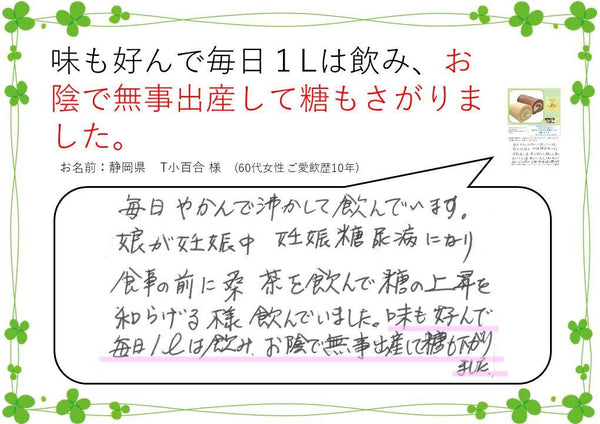 味も好んで毎日１Lは飲み、お
陰で無事出産して糖もさがりま
した。
お名前：静岡県　T小百合 様　（60代女性ご愛飲歴10年）
毎日 やかんで沸かして飲んでいます。
娘が妊娠中 妊娠糖尿病になり
食事の前に 桑 茶を飲んで糖の上昇を
和らげる様 飲んでいました。味も好んで
毎日1ℓは飲み、お陰で無事出産して糖も下がり
ました。